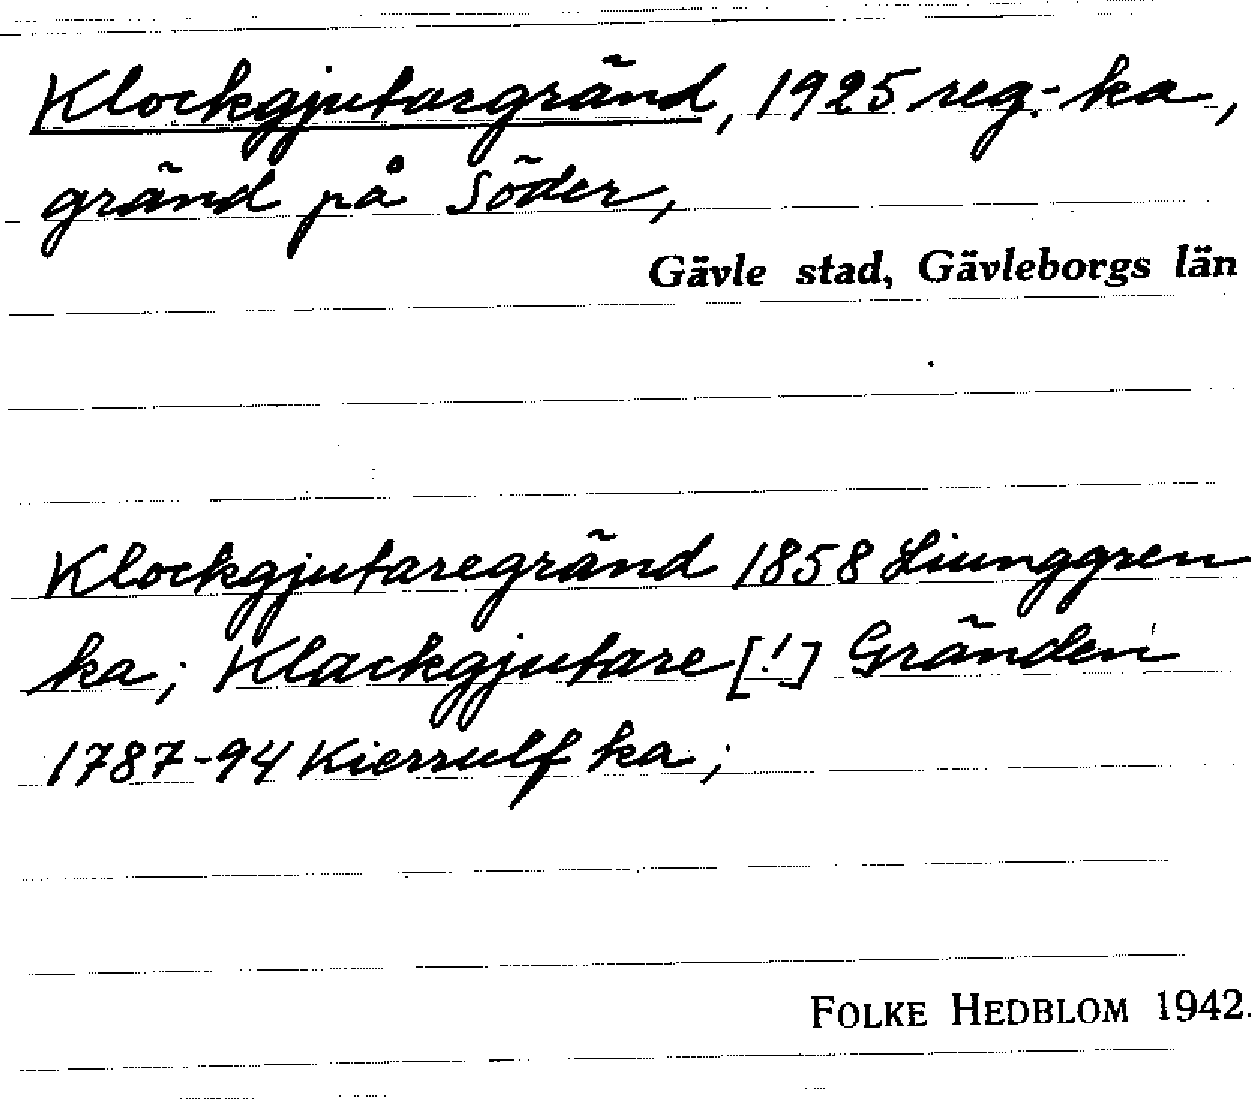 Klockgjutargränd, 1925 reg.-ka,
gränd på Söder,
Gävle stad, Gävleborgs län
Klockgjutaregränd 1858 Liunggren
ka; Klackgjutare [!] Gränden
1787-94 Kierrulf ka;
FOLKE HEDBLOM 1942.